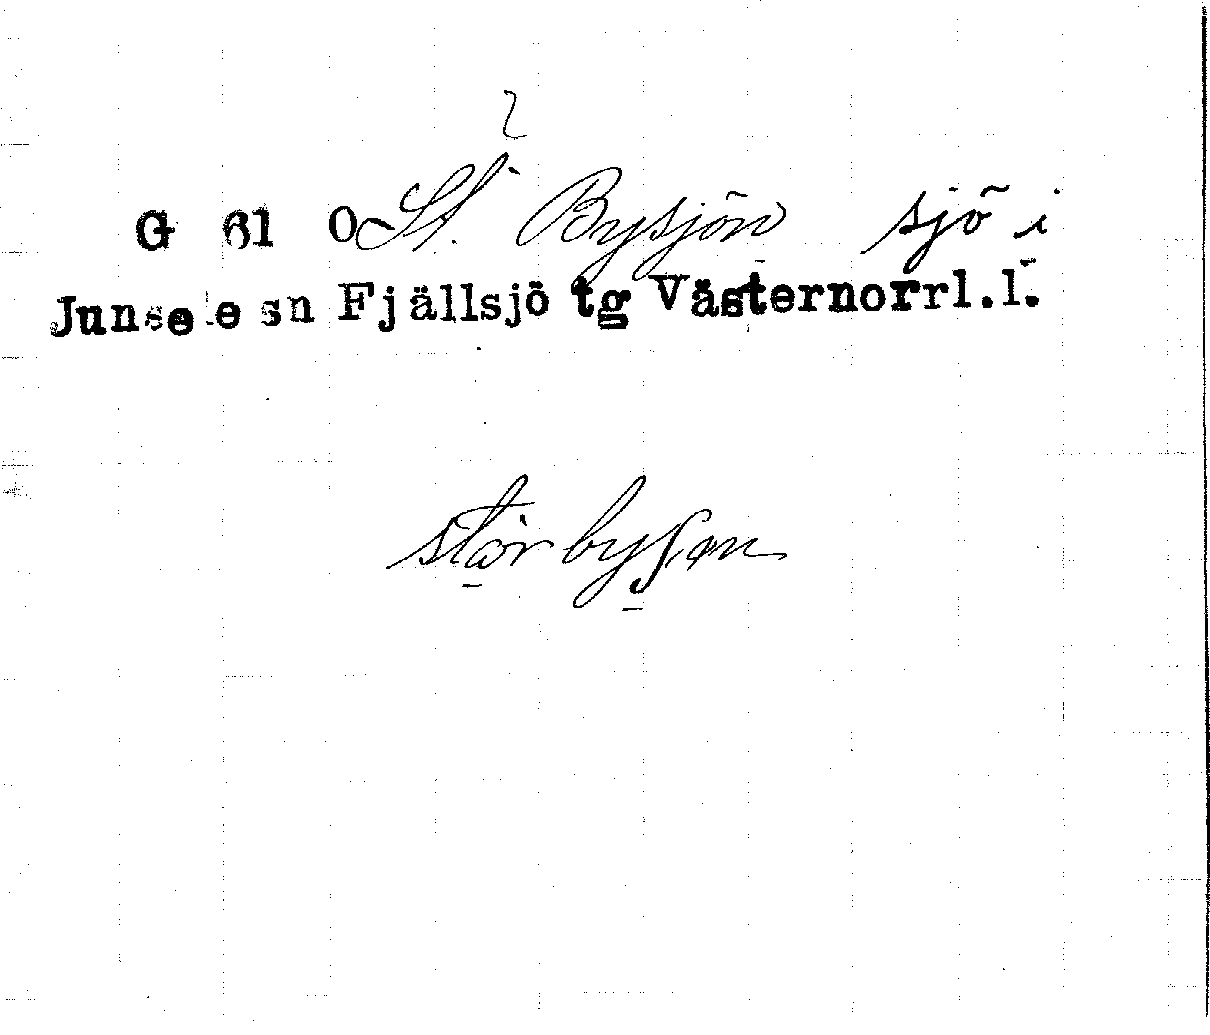 G 61 O St. Bysjön sjö i
Junsele sn Fjällsjö tg Västernorrl.l.